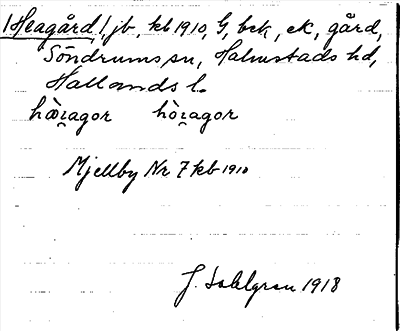 /Heagård/ jb, kb 1910, G, bek, ek, gård,
Söndrums sn, Halmstads hd,
Hallands l.
hæ̀ragor hòragor
Mjellby Nr 7 kb 1910
J. Sahlgren 1918